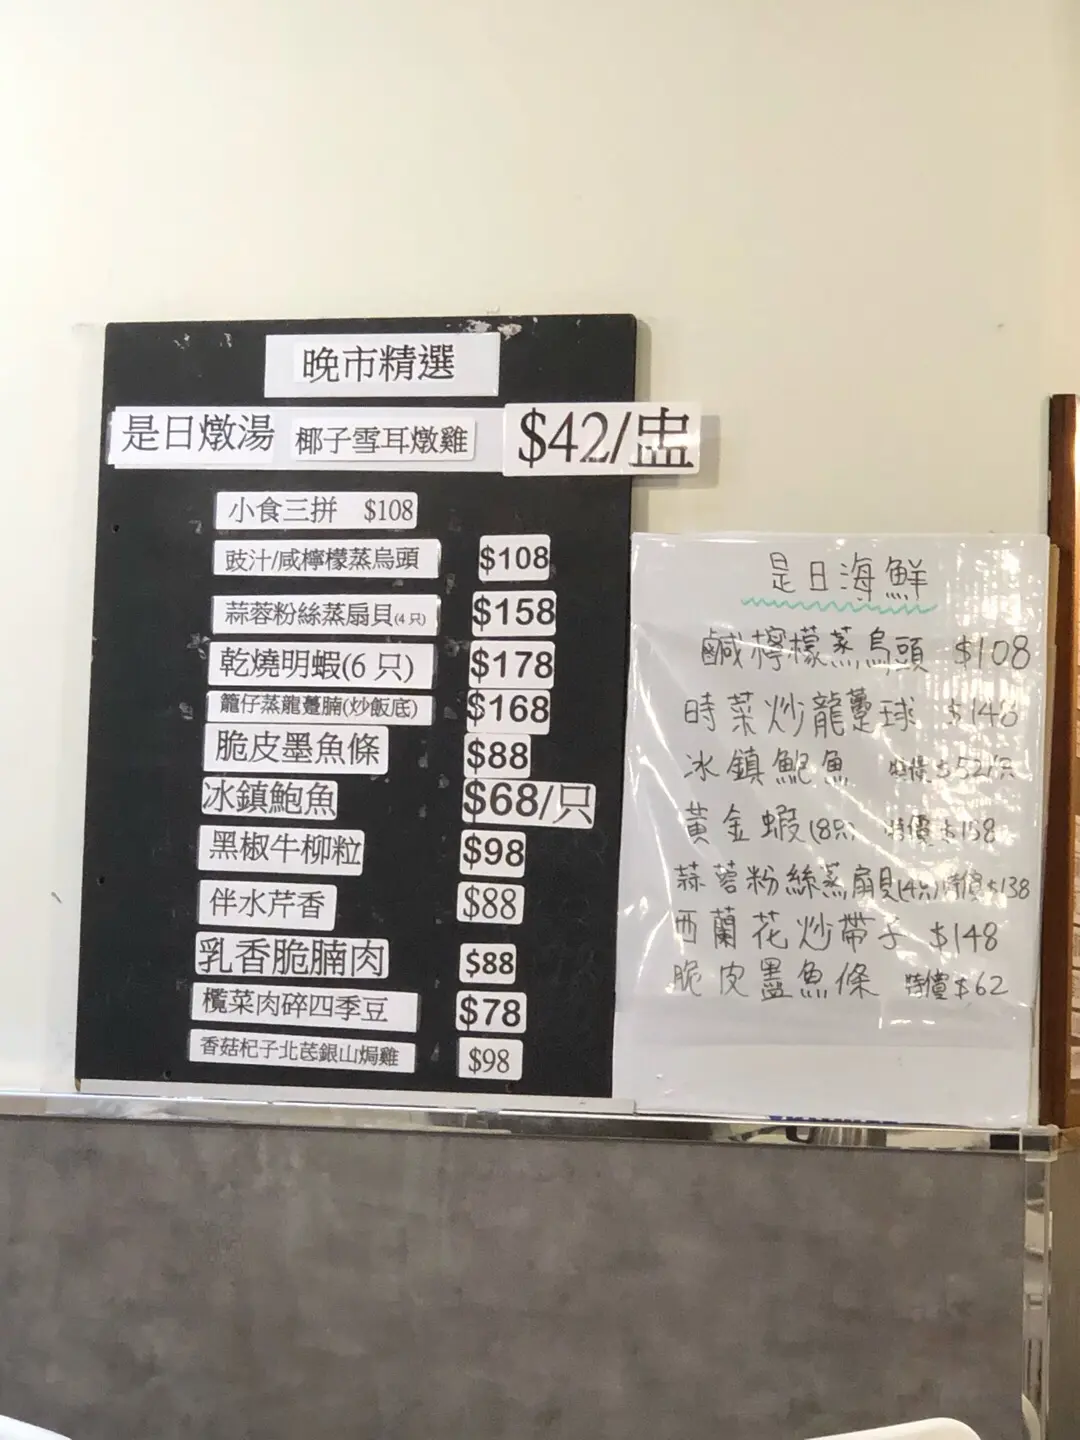 晚市精選
是日燉湯 椰子雪耳燉雞 $42/盅
小食三拼 $108
豉汁/咸檸檬蒸烏頭 $108
蒜蓉粉絲蒸扇貝(4只) $158
乾燒明蝦(6只) $178
籠仔蒸龍躉腩(炒飯底) $168
脆皮墨魚條 $88
冰鎮鮑魚 $68/只
黑椒牛柳粒 $98
伴水芹香 $88
乳香脆腩肉 $88
欖菜肉碎四季豆 $78
香菇杞子北芪銀山焗雞 $98
是日海鮮
鹹檸檬蒸烏頭 $108
時菜炒龍躉球 $148
冰鎮鮑魚 特價$52/只
黃金蝦(8只) 特價$158
蒜蓉粉絲蒸扇貝(4只)特價$138
西蘭花炒帶子 $148
脆皮墨魚條 特價$62